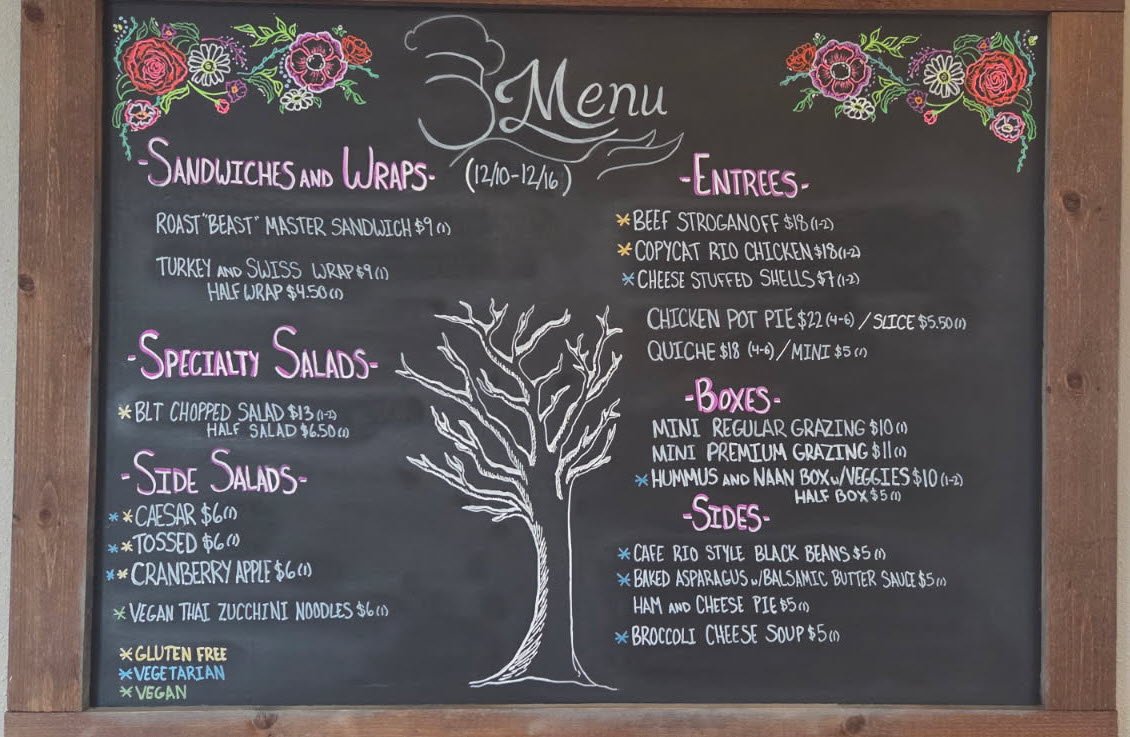 Menu
-SANDWICHES AND WRAPS- (12/10-12/16)
ROAST "BEAST" MASTER SANDWICH $9 (1)
TURKEY AND SWISS WRAP $9 (1)
HALF WRAP $4.50 (1)
-SPECIALTY SALADS-
*BLT CHOPPED SALAD $13 (1-2)
HALF SALAD $6.50 (1)
-SIDE SALADS-
**CAESAR $6 (1)
**TOSSED $6 (1)
**CRANBERRY APPLE $6 (1)
*VEGAN THAI ZUCCHINI NOODLES $6 (1)
*GLUTEN FREE
*VEGETARIAN
*VEGAN
-ENTREES-
*BEEF STROGANOFF $18 (1-2)
*COPYCAT RIO CHICKEN $18 (1-2)
*CHEESE STUFFED SHELLS $7 (1-2)
CHICKEN POT PIE $22 (4-6) / SLICE $5.50 (1)
QUICHE $18 (4-6) / MINI $5 (1)
-BOXES-
MINI REGULAR GRAZING $10 (1)
MINI PREMIUM GRAZING $11 (1)
*HUMMUS AND NAAN BOX w/VEGGIES $10 (1-2)
HALF BOX $5 (1)
-SIDES-
*CAFE RIO STYLE BLACK BEANS $5 (1)
*BAKED ASPARAGUS w/BALSAMIC BUTTER SAUCE $5 (1)
HAM AND CHEESE PIE $5 (1)
*BROCCOLI CHEESE SOUP $5 (1)